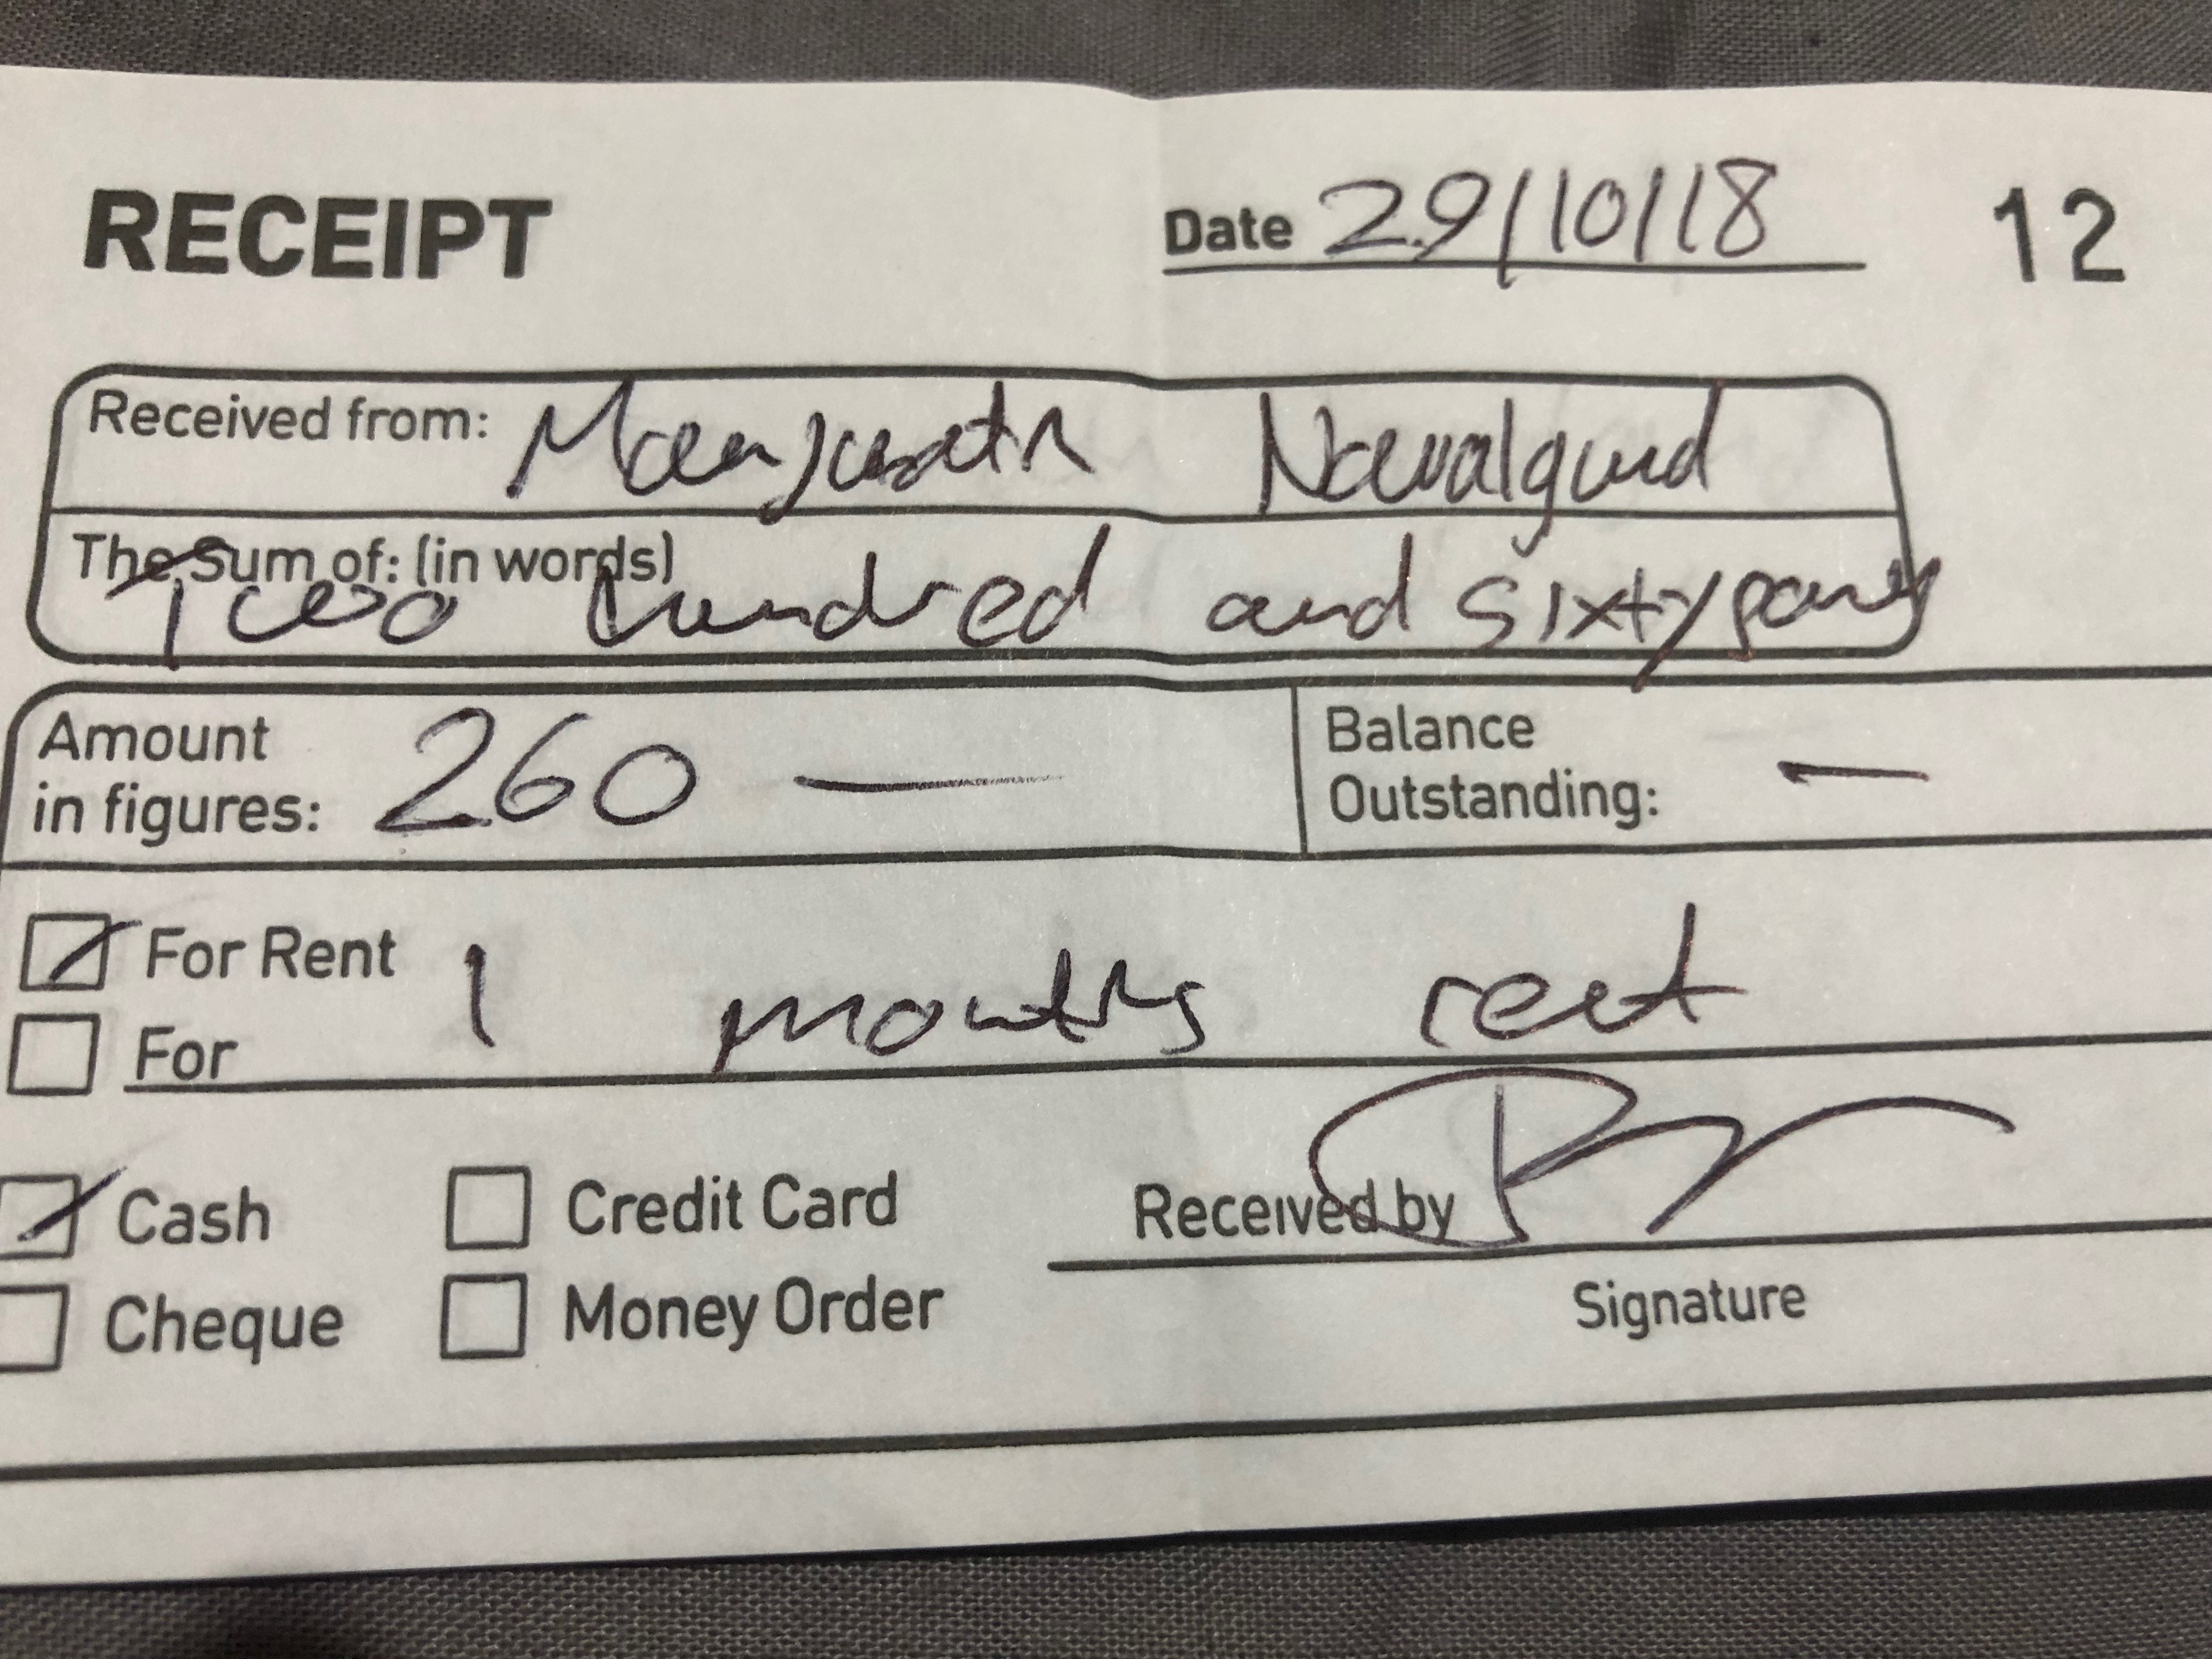 RECEIPT Date 29/10/18 12
Received from: Manjunath Navalgund
The Sum of: (in words)
Two hundred and sixty
Amount in figures: 260 — Balance Outstanding: —
For Rent 1 months rent
For
Cash Credit Card Received by
Cheque Money Order Signature